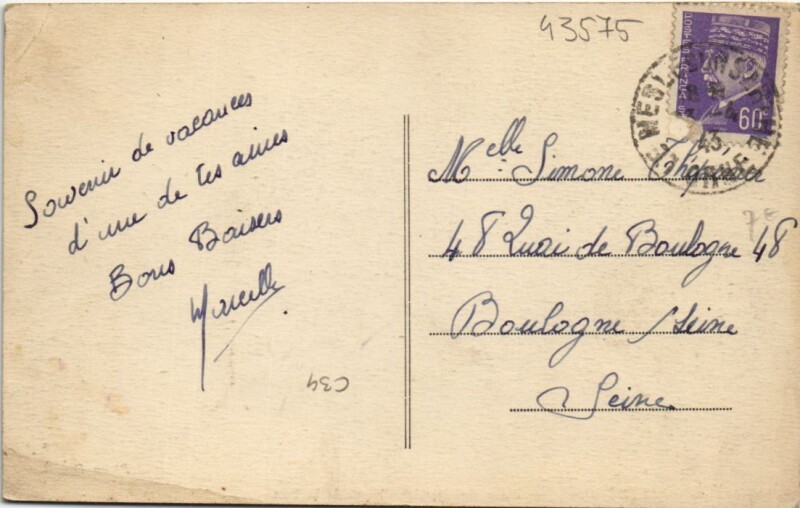 43575
Souvenir de vacances
d'une de tes amies
Bons Baisers
Marcelle
C34
60
43
Melle Simone
48 Quai de Boulogne 48
Boulogne / Seine
Seine
7€